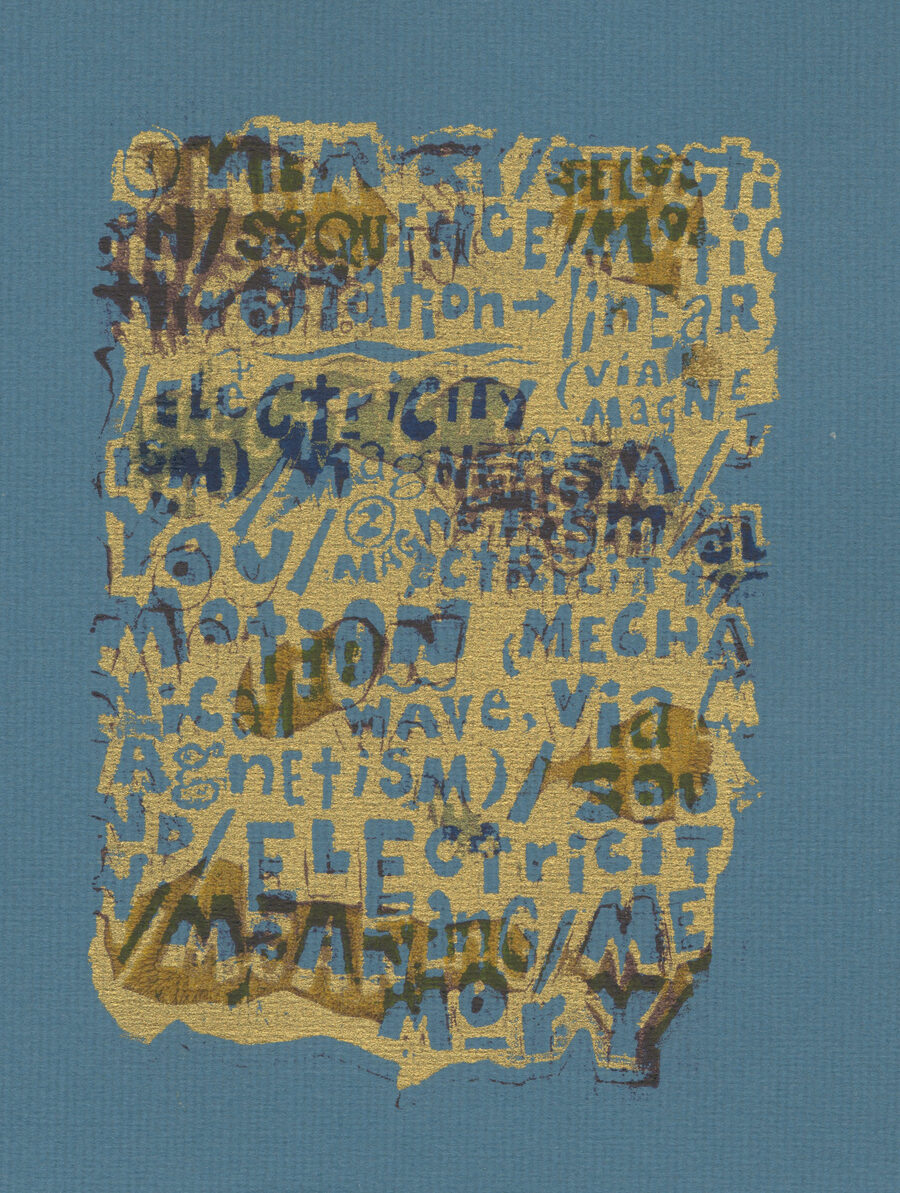 /SELECTi
ON/SEQUENCE/MOtiO
rotation→/linEaR
/ELECtRiCITY (via
MAGNE
iSM) MagNETiSM/
YOU/② MAGNETiSM/el
ECTRICIT
MOtiON (MECHA
Nic WAVE, Via M
AgnEtiSM)/SOU
ND/ELECtriciT
Y/MEANiNG/ME
MorY